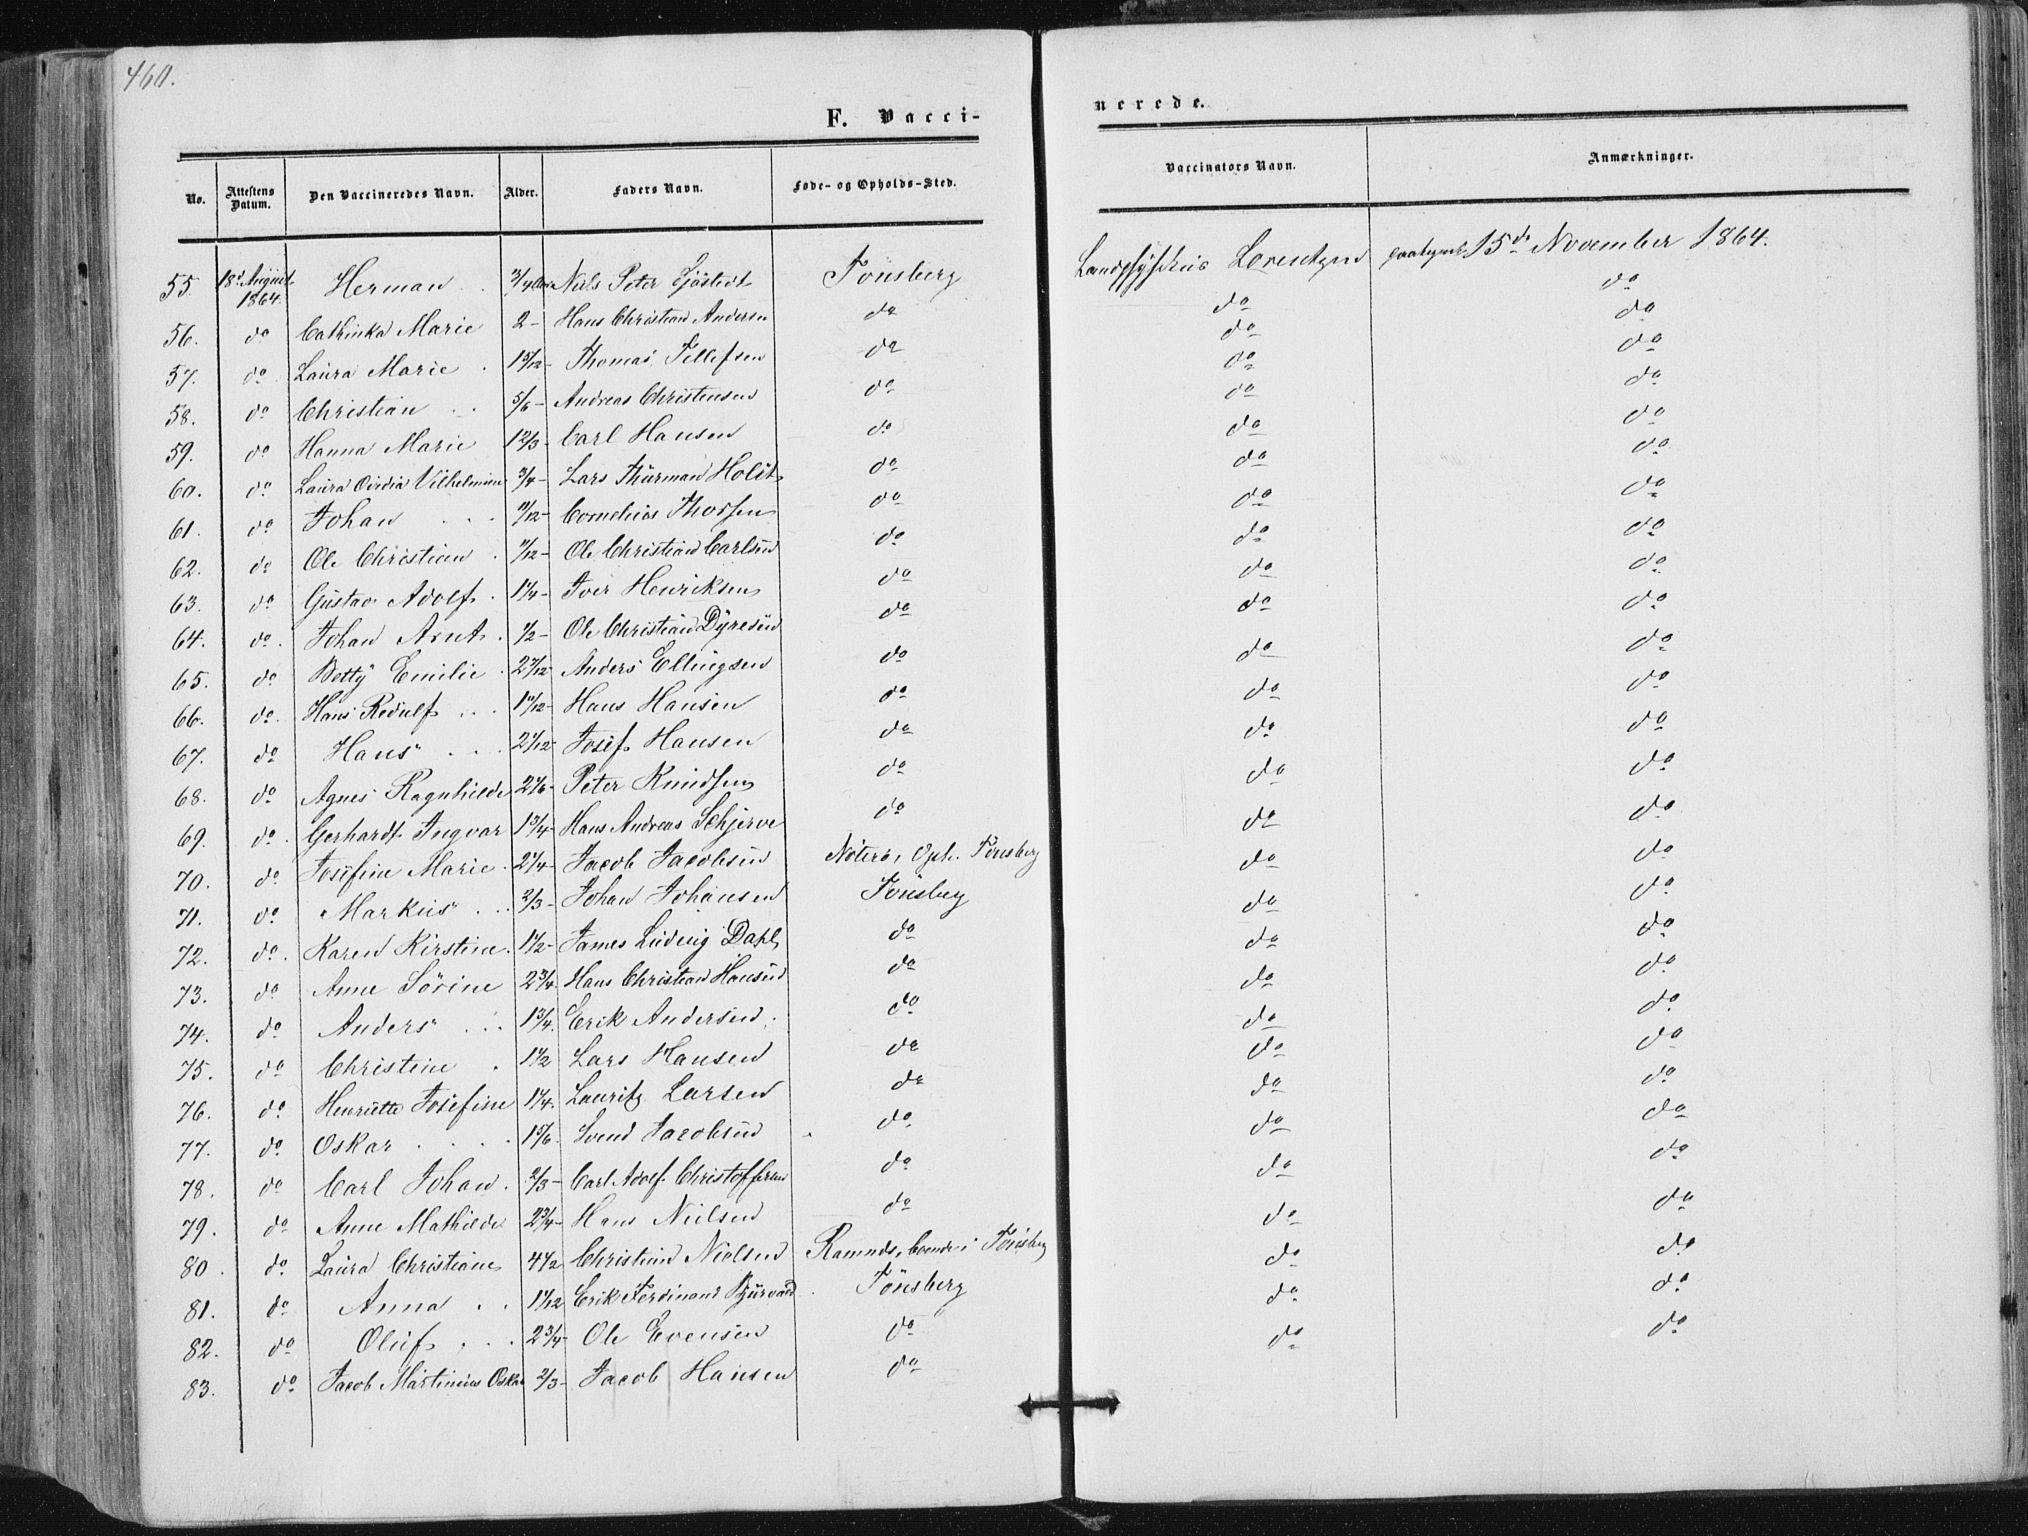 460.
F. Vacci-
nerede.
No. Attestens Datum. Den Vaccineredes Navn. Alder. Faders Navn. Føde- og Opholds-Sted. Vaccinators Navn. Anmærkninger.
55. 18de August 1864. Herman 3/4 Aar Niels Peter Sjöstedt Tönsberg Landphysikus Lorentzen 15de November 1864.
56. do Cathinka Marie 2 - Hans Christian Andersen do do do
57. do Laura Marie 1 5/12 - Thomas Tellefsen do do do
58. do Christian 5/6 - Andreas Christensen do do do
59. do Hanna Marie 1 2/3 - Carl Hansen do do do
60. do Laura Vilhelmine 3/4 - Lars Thurman Holst do do do
61. do Johan 11/12 - Cornelius Thorsen do do do
62. do Ole Christian 7/12 - Ole Christian Carlsen do do do
63. do Gustav Adolf 1 1/4 - Iver Henriksen do do do
64. do Johan Arnt 1/2 - Ole Christian Dyresen do do do
65. do Betty Emilie 2 7/12 Anders Ellingsen do do do
66. do Hans Redulf 1 11/12 - Hans Hansen do do do
67. do Hans 2 1/12 - Josef Hansen do do do
68. do Agnes Ragnhilde 2 1/6 - Peter Knudsen do do do
69. do Gerhardt Ingvar 1 3/4 - Hans Andreas Schjerve do do do
70. do Josefine Marie 2 1/4 - Jacob Jacobsen Nöterö, Oph. Tönsberg do do
71. do Markus 2/3 - Johan Johansen Tönsberg do do
72. do Karen Kirstine 1 1/2 - James Ludvig Dahl do do do
73. do Anne Sörine 2 3/4 Hans Christian Hansen do do do
74. do Anders 1 3/4 Erik Andersen do do do
75. do Christine 1 1/2 Lars Hansen do do do
76. do Henriette Josefine 1 1/4 Lauritz Larsen do do do
77. do Oskar 1 5/6 Svend Jacobsen do do do
78. do Carl Johan 2/3 - Carl Adolf Christoffersen do do do
79. do Anne Mathilde 2 3/4 - Hans Nielsen do do do
80. do Laura Christiane 4 1/2 Christian Nielsen Ramnæs, boende i Tönsberg do do
81. do Anna 1 1/12 Erik Ferdinand Tönsberg do do
82. do Oluf 2 3/4 - Ole Evensen do do do
83. do Jacob Martinius Oskar 2/3 - Jacob Hansen do